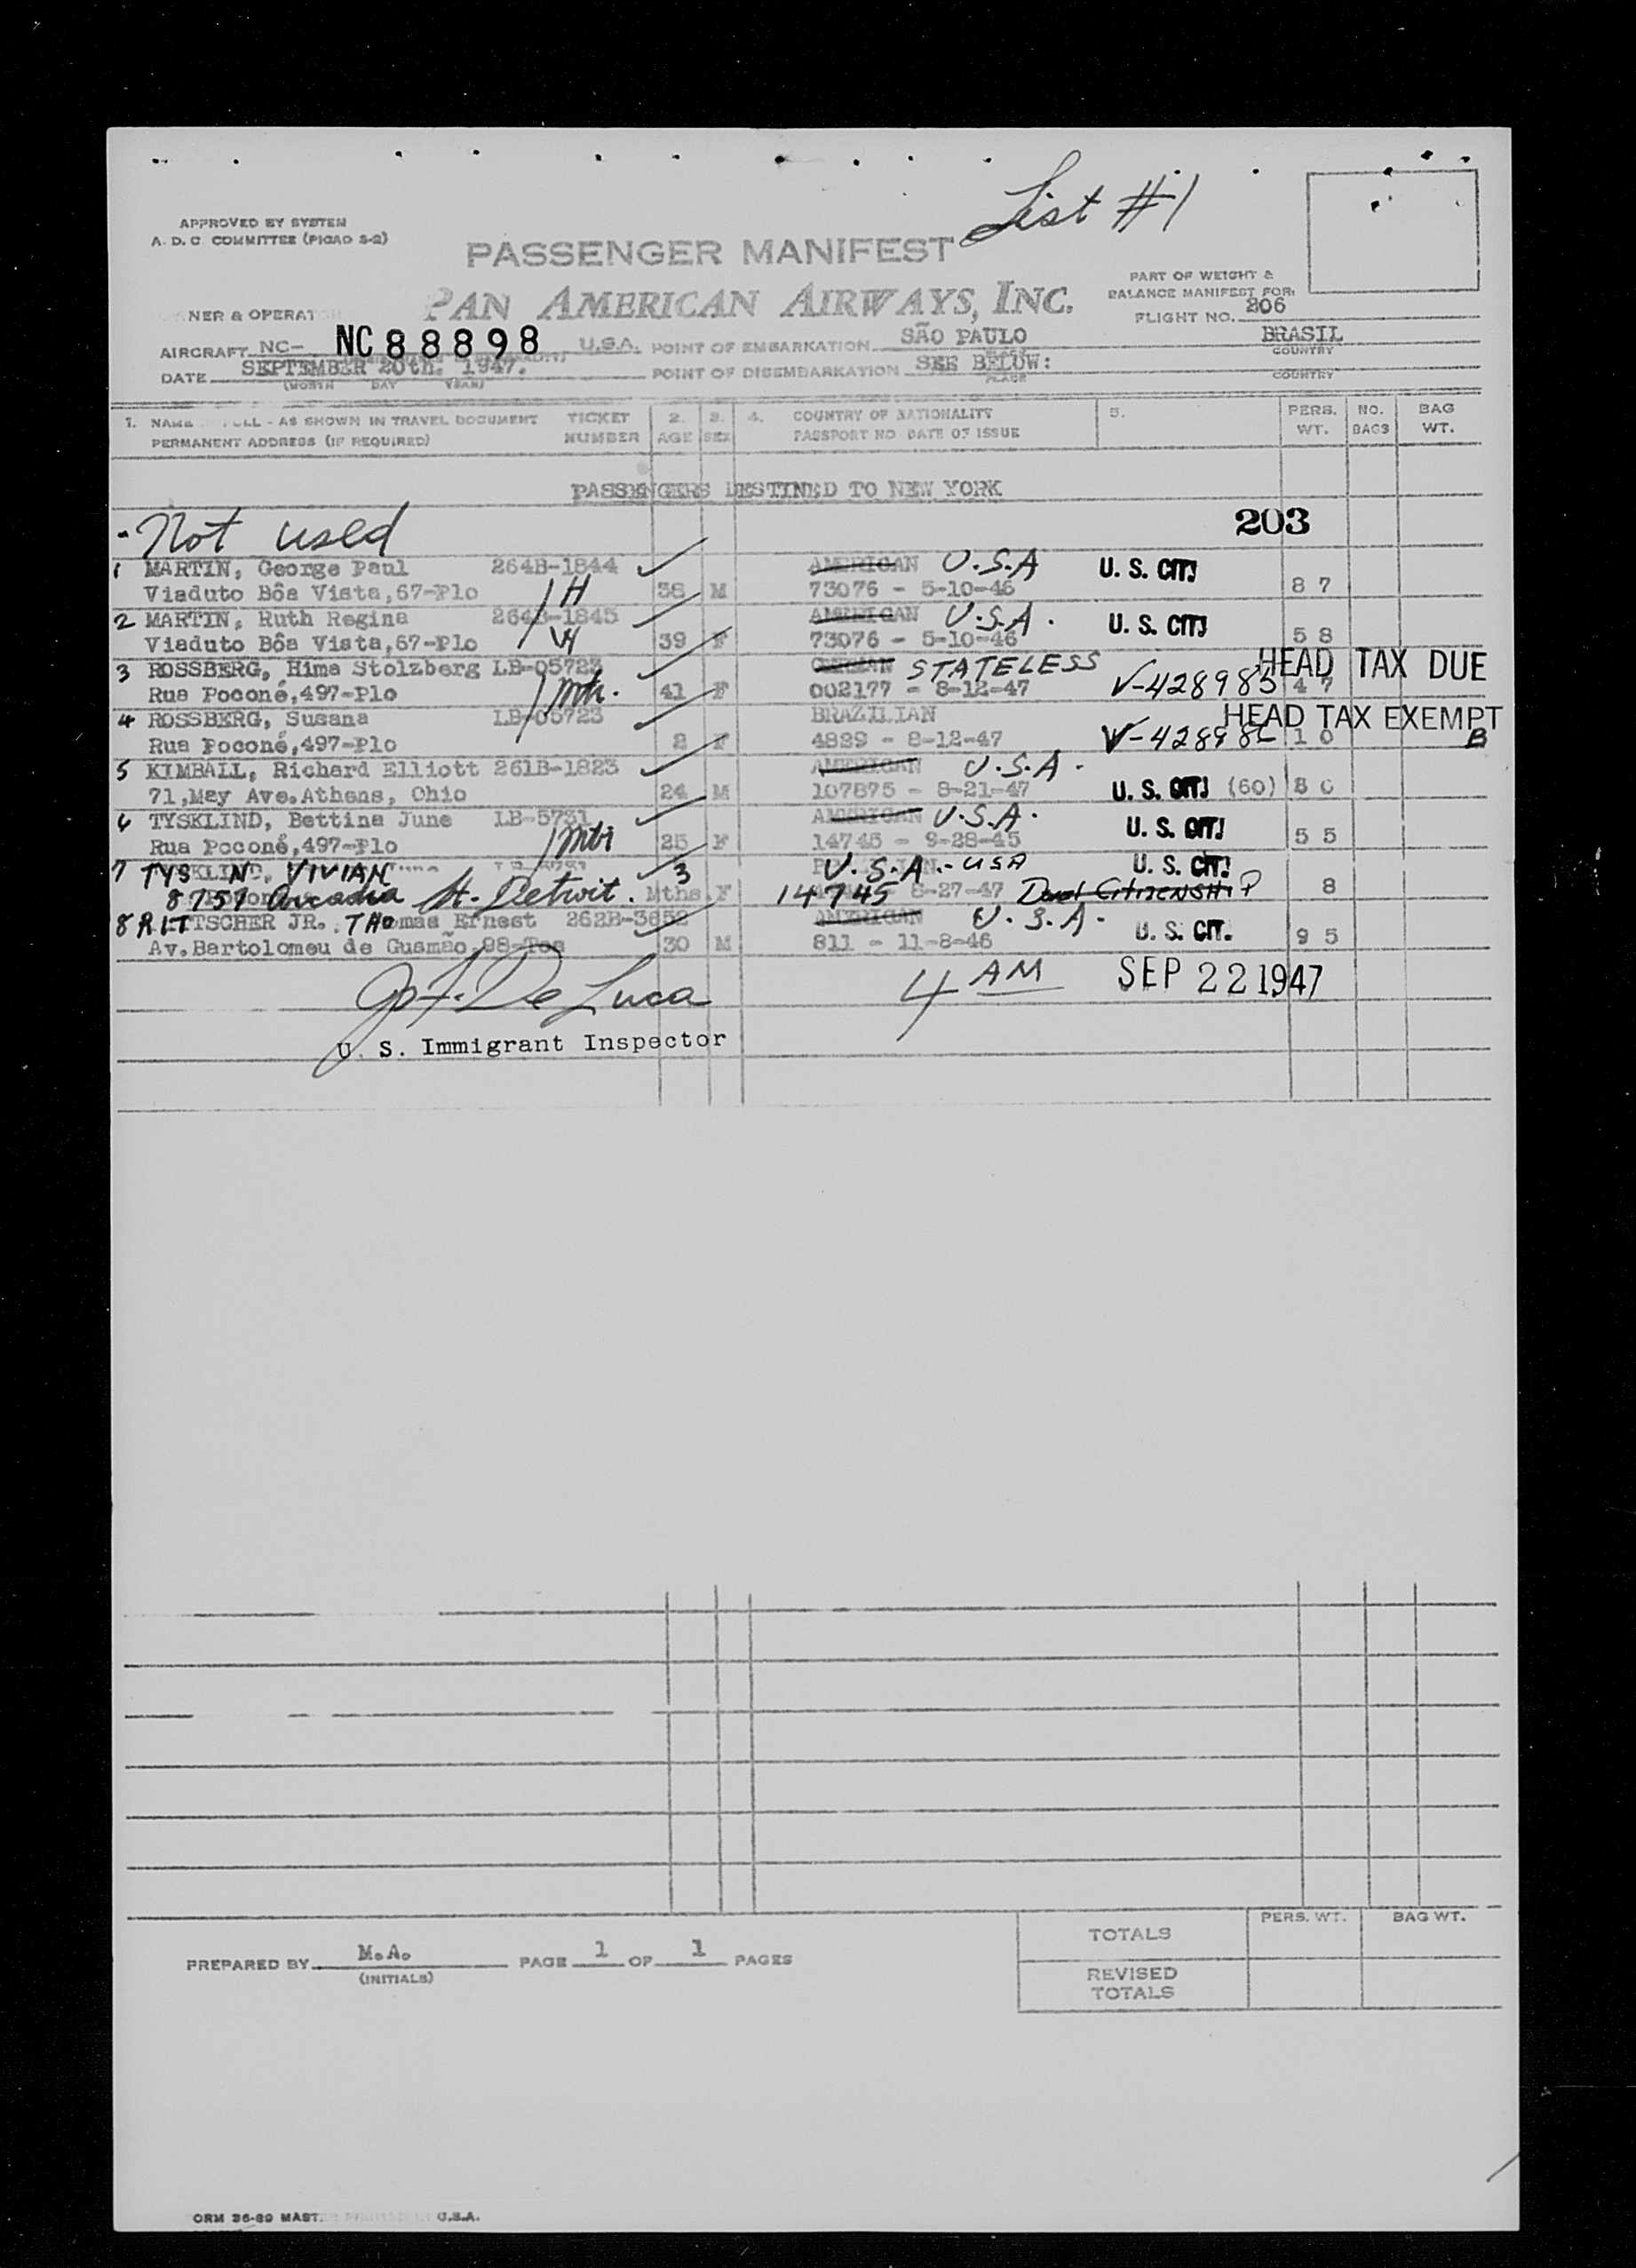 List #1
APPROVED BY SYSTEM
A. D. C. COMMITTEE (PICAO S-2)
PASSENGER MANIFEST
PAN AMERICAN AIRWAYS, INC.
PART OF WEIGHT &
BALANCE MANIFEST FOR:
FLIGHT NO. 206
NER & OPERAT
AIRCRAFT NC- NC 88898 U.S.A. POINT OF EMBARKATION SÃO PAULO BRASIL
PLACE COUNTRY
DATE SEPTEMBER 20th. 1947. POINT OF DISEMBARKATION SEE BELOW:
(MONTH DAY YEAR) PLACE COUNTRY
1. NAME ULL - AS SHOWN IN TRAVEL DOCUMENT TICKET 2. 3. 4. COUNTRY OF NATIONALITY 5. PERS. NO. BAG
PERMANENT ADDRESS (IF REQUIRED) NUMBER AGE SEX PASSPORT NO DATE OF ISSUE WT. BAGS WT.
PASSENGERS DESTINED TO NEW YORK
Not used 203
1 MARTIN, George Paul 264B-1844 AMERICAN U.S.A U. S. CIT.
Viaduto Bôa Vista,67-Plo H 38 M 73076 - 5-10-46 87
2 MARTIN, Ruth Regina 264B-1845 AMERICAN U.S.A. U. S. CIT.
Viaduto Bôa Vista,67-Plo W 39 F 73076 - 5-10-46 58
3 ROSSBERG, Hima Stolzberg LB-05723 STATELESS HEAD TAX DUE
Rua Poconé,497-Plo 41 F 002177 - 8-12-47 V-428985 47
4 ROSSBERG, Susana LB-05723 BRAZILIAN HEAD TAX EXEMPT
Rua Poconé,497-Plo 2 F 4829 - 8-12-47 10 B
5 KIMBALL, Richard Elliott 261B-1823 AMERICAN U.S.A.
71,May Ave.Athens, Ohio 24 M 107875 - 8-21-47 U. S. CIT. (60) 80
6 TYSKLIND, Bettina June LB-5731 AMERICAN U.S.A. U. S. CIT.
Rua Poconé,497-Plo 25 F 14745 - 9-28-45 55
7 TYSKLIND, VIVIAN 3 U.S.A.-USA U. S. CIT.
8757 Arcadia St. Detroit. Mths F 14745 8-27-47 Dual CITIZENSHIP 8
8 RITTSCHER JR., THOmas Ernest 262B-3652 AMERICAN U.S.A. U. S. CIT.
Av.Bartolomeu de Gusmão,98-Tos 30 M 811 - 11-8-46 95
De Luca 4 AM SEP 22 1947
U. S. Immigrant Inspector
PERS. WT. BAG WT.
TOTALS
PREPARED BY M.A. PAGE 1 OF 1 PAGES
(INITIALS)
REVISED
TOTALS
ORM 36-89 MAST. U.S.A.